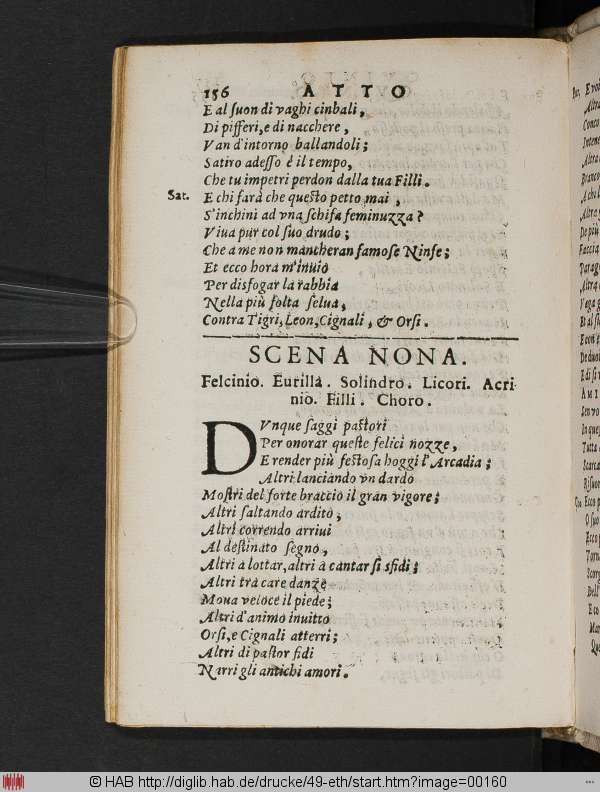 156 ATTO
E al ſuon di vaghi cinbali,
Di pifferi, e di nacchere,
Van d'intorno ballandoli;
Satiro adeſſo é il tempo,
Che tu impetri perdon dalla tua Filli.
Sat. E chi farà che queſto petto mai,
S'inchini ad vna ſchifa feminuzza?
Viua pur col ſuo drudo;
Che a me non mancheran famoſe Ninfe;
Et ecco hora m'inuio
Per disfogar la rabbia
Nella più folta ſelua,
Contra Tigri, Leon, Cignali, & Orſi.
SCENA NONA.
Felcinio. Eurilla. Solindro. Licori. Acri-
nio. Filli. Choro.
DVnque ſaggi paſtori
Per onorar queſte felici nozze,
E render più feſtoſa hoggi l'Arcadia;
Altri lanciando vn dardo
Moſtri del forte braccio il gran vigore;
Altri ſaltando ardito,
Altri correndo arriui
Al deſtinato ſegno,
Altri a lottar, altri à cantar ſi sfidi;
Altri trà care danze
Moua veloce il piede;
Altri d'animo inuitto
Orſi, e Cignali atterri;
Altri di paſtor fidi
Narri gli antichi amori.
© HAB http://diglib.hab.de/drucke/49-eth/start.htm?image=00160